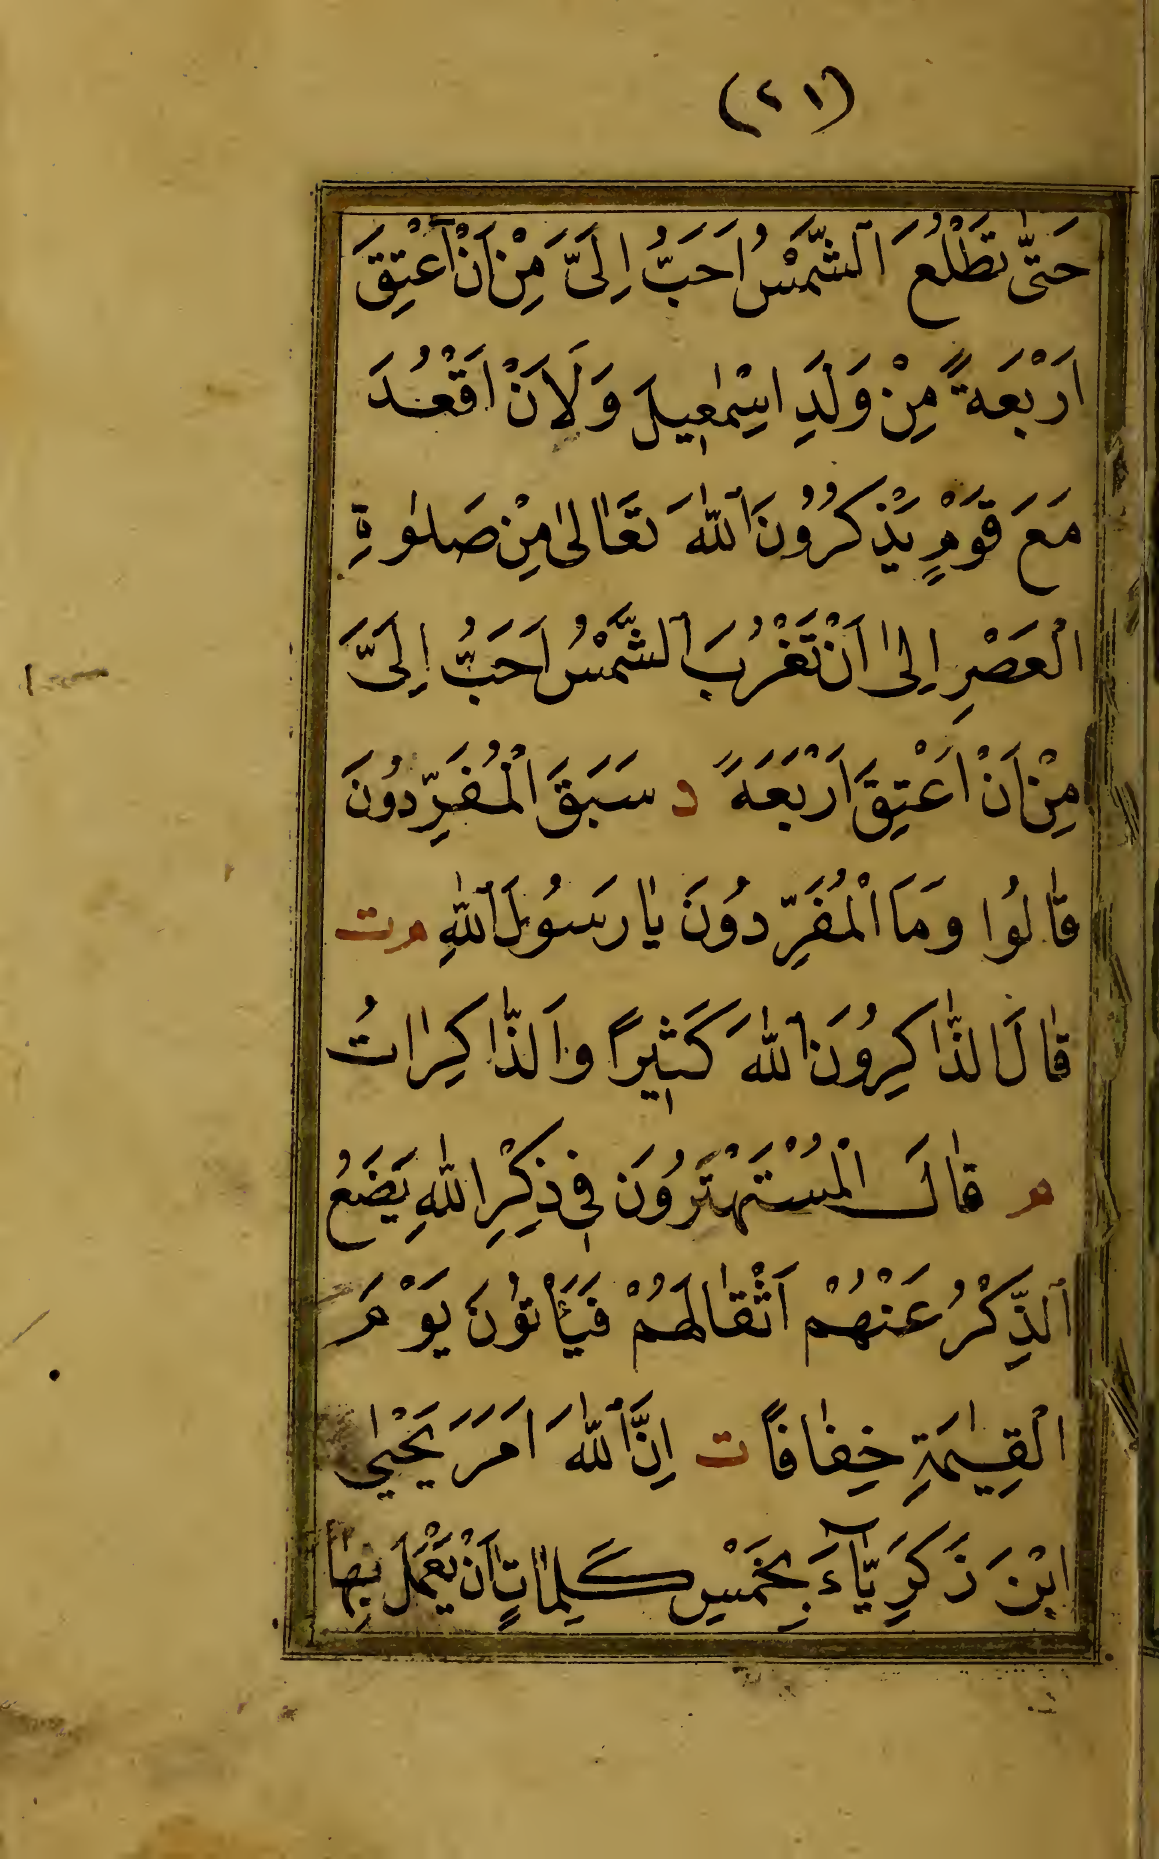 (٢١)
حَتّٰى تَطْلُعَ الشَّمْسُ اَحَبُّ اِلَىَّ مِنْ اَنْ اَعْتِقَ
اَرْبَعَةً مِنْ وَلَدِ اِسْمٰعِيلَ وَلَاَنْ اَقْعُدَ
مَعَ قَوْمٍ يَذْكُرُونَ اللّٰهَ تَعَالٰى مِنْ صَلٰوةِ
الْعَصْرِ اِلٰى اَنْ تَغْرُبَ الشَّمْسُ اَحَبُّ اِلَىَّ
مِنْ اَنْ اَعْتِقَ اَرْبَعَةً د سَبَقَ الْمُفَرِّدُونَ
قَالُوا وَمَا الْمُفَرِّدُونَ يَا رَسُولَ اللّٰهِ م ت
قَالَ الذَّاكِرُونَ اللّٰهَ كَثِيرًا وَالذَّاكِرَاتُ
م قَالَ الْمُسْتَهْتَرُونَ فِى ذِكْرِ اللّٰهِ يَضَعُ
الذِّكْرُ عَنْهُمْ اَثْقَالَهُمْ فَيَأْتُونَ يَوْمَ
الْقِيٰمَةِ خِفَافًا ت اِنَّ اللّٰهَ اَمَرَ يَحْيٰى
ابْنَ زَكَرِيَّآءَ بِخَمْسِ كَلِمَاتٍ اَنْ يَعْمَلَ بِهَا